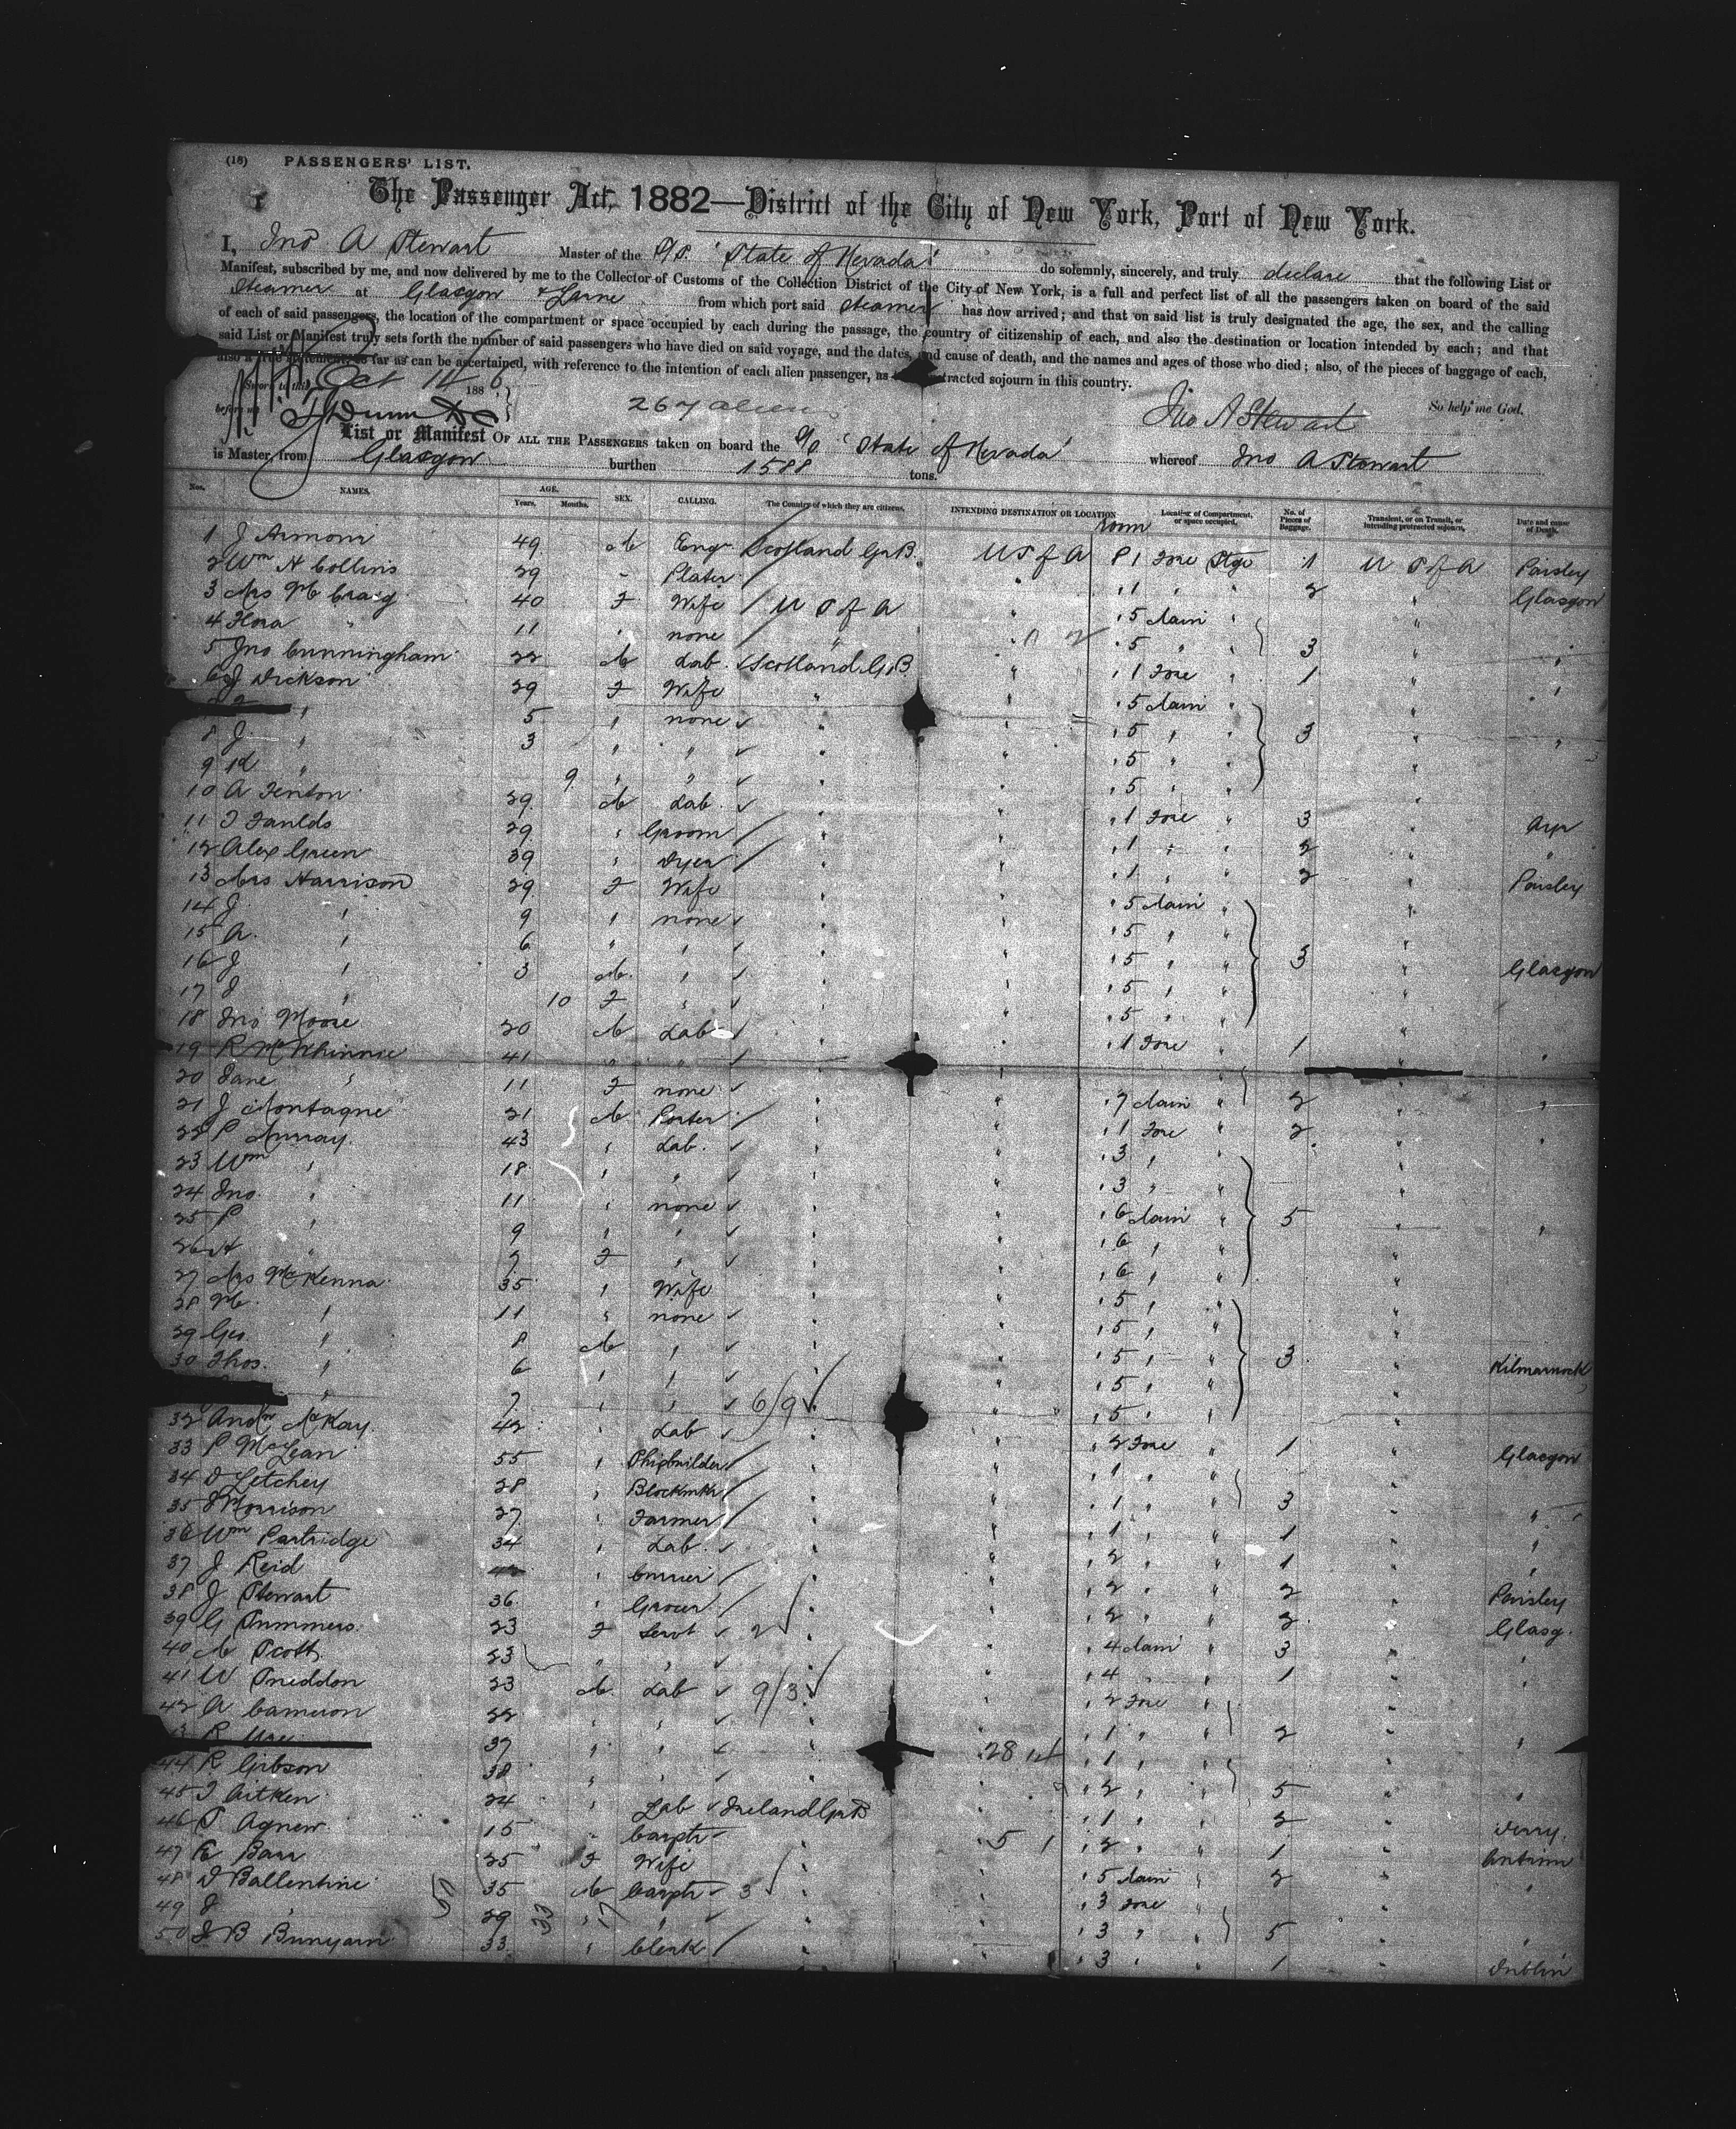 (16) PASSENGERS' LIST.
The Passenger Act, 1882—District of the City of New York, Port of New York.
I, Jno A Stewart Master of the S/S. "State of Nevada" do solemnly, sincerely, and truly declare that the following List or
Manifest, subscribed by me, and now delivered by me to the Collector of Customs of the Collection District of the City of New York, is a full and perfect list of all the passengers taken on board of the said
Steamer at Glasgow & Larne from which port said Steamer has now arrived; and that on said list is truly designated the age, the sex, and the calling
of each of said passengers, the location of the compartment or space occupied by each during the passage, the country of citizenship of each, and also the destination or location intended by each; and that
said List or Manifest truly sets forth the number of said passengers who have died on said voyage, and the dates, and cause of death, and the names and ages of those who died; also, of the pieces of baggage of each,
also a true statement, so far as can be ascertained, with reference to the intention of each alien passenger, as tracted sojourn in this country.
Sworn to this Oct 14 1886
before me 267 aliens Jno A Stewart So help me God.
List or Manifest OF ALL THE PASSENGERS taken on board the S/S "State of Nevada" whereof Jno A Stewart
is Master, from Glasgow burthen 1588 tons.
Nos. NAMES. AGE. Years. Months. SEX. CALLING. The Country of which they are citizens. INTENDING DESTINATION OR LOCATION Room Location of Compartment, or space occupied. No. of Pieces of Baggage. Transient, or on Transit, or intending protracted sojourn. Date and cause of Death.
1 J Armour 49 M Engr Scotland Gt B. U S of A S 1 Fore Stge 1 U S of A Paisley
2 Wm H Collins 29 " Plater " 1 " " 2 " Glasgow
3 Mrs M Craig 40 F Wife U S of A " 5 Main "
4 Flora " 11 " none " " 5 " " 3 " "
5 Jno Cunningham 22 M Lab Scotland Gt B " 1 Fore " 1 " "
6 J Dickson 29 F Wife " " 5 Main "
" 5 " none " " 5 " " 3 " "
8 J " 3 " " " " 5 " "
9 Rd " 9 " " " " 5 " "
10 A Fenton 29 M Lab " " 1 Fore " 3 " Ayr
11 J Faulds 29 " Groom " " 1 " " 2 " "
12 Alex Green 39 " Dyer " " 1 " " 2 " Paisley
13 Mrs Harrison 29 F Wife " " 5 Main "
14 J " 9 " none " " 5 " "
15 A " 6 " " " " 5 " " 3 " Glasgow
16 J " 3 M " " " 5 " "
17 J " 10 F " " " 5 " "
18 Jno Moore 20 M Lab " " 1 Fore " 1 " "
19 R McWhinnie 41 " " "
20 Jane " 11 F none " " 7 Main " 2 " "
21 J Montague 21 M Porter " " 1 Fore " 2 " "
22 P Murray 43 " Lab " " 3 " "
23 Wm " 18 " " " " 3 " "
24 Jno " 11 " none " " 6 Main " 5 " "
25 P " 9 " " " " 6 " "
26 A " 7 F " " " 6 " "
27 Mrs McKenna 35 " Wife " " 5 " "
28 M " 11 " none " " 5 " "
29 Geo " 8 M " " " 5 " " 3 " Kilmarnock
30 Thos " 6 " " " " 5 " "
" 7 " " 6/9 " " 5 " "
32 Andw McKay 42 " Lab " " 2 Fore " 1 " Glasgow
33 P MacLean 55 " Shipbuilder " " 1 " "
34 D Letchey 28 " Blockmkr " " 1 " " 3 " "
35 J Morrison 27 " Farmer " " 1 " " 1 " "
36 Wm Partridge 34 " Lab " " 2 " " 1 " "
37 J Reid " Currier " " 2 " " 2 " Paisley
38 J Stewart 36 " Grocer " " 2 " " 2 " Glasg.
39 G Summers 23 F Servt 2 " " 4 Main " 3 " "
40 M Scott 23 " " " " 4 " " 1 " "
41 W Sneddon 23 M Lab 9/3 " " 2 Fore "
42 A Cameron 22 " " " " 1 " " 2 " "
R 37 " " " 28 " 1 " "
44 R Gibson 38 " " " " 2 " " 5 " "
45 J Aitken 24 " Lab Ireland Gt B " 1 " " 2 " Derry
46 S Agnew 15 " Carptr " 5 1 " 2 " " 1 " Antrim
47 E Barr 25 F Wife " " 5 Main " 2 " "
48 D Ballentine 35 M Carptr 3 " " 3 Fore "
49 J " 29 " " " " 3 " " 5 " "
50 J B Bunyan 33 " Clerk " " 3 " " 1 " Dublin